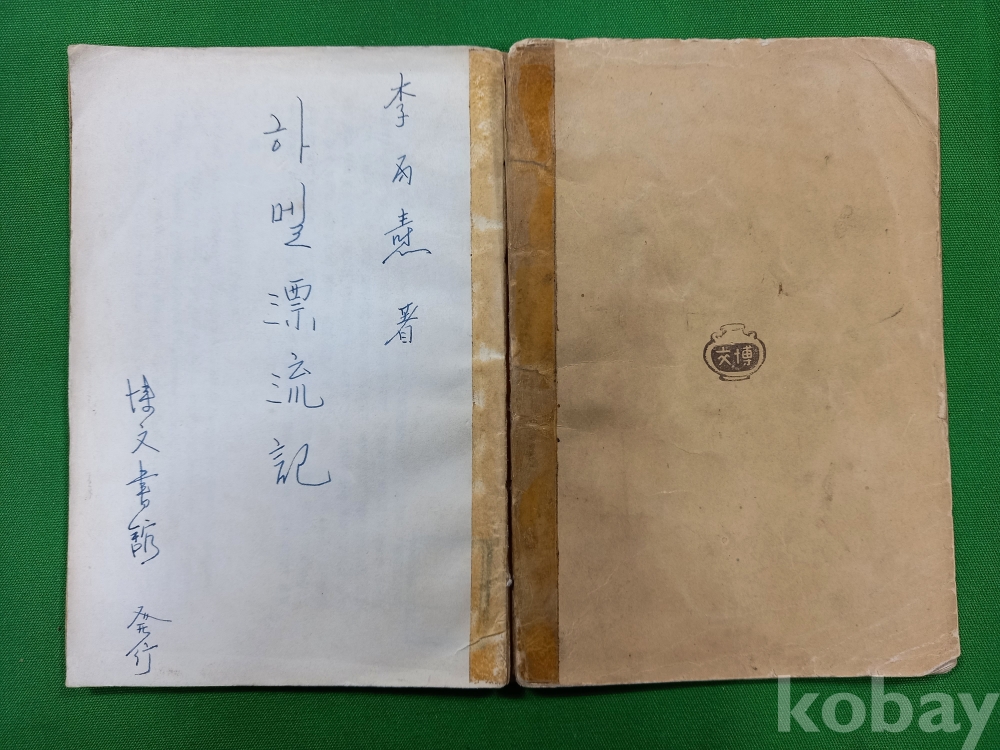 李丙燾 著
하멜漂流記
博文書館 発行
博文
kobay